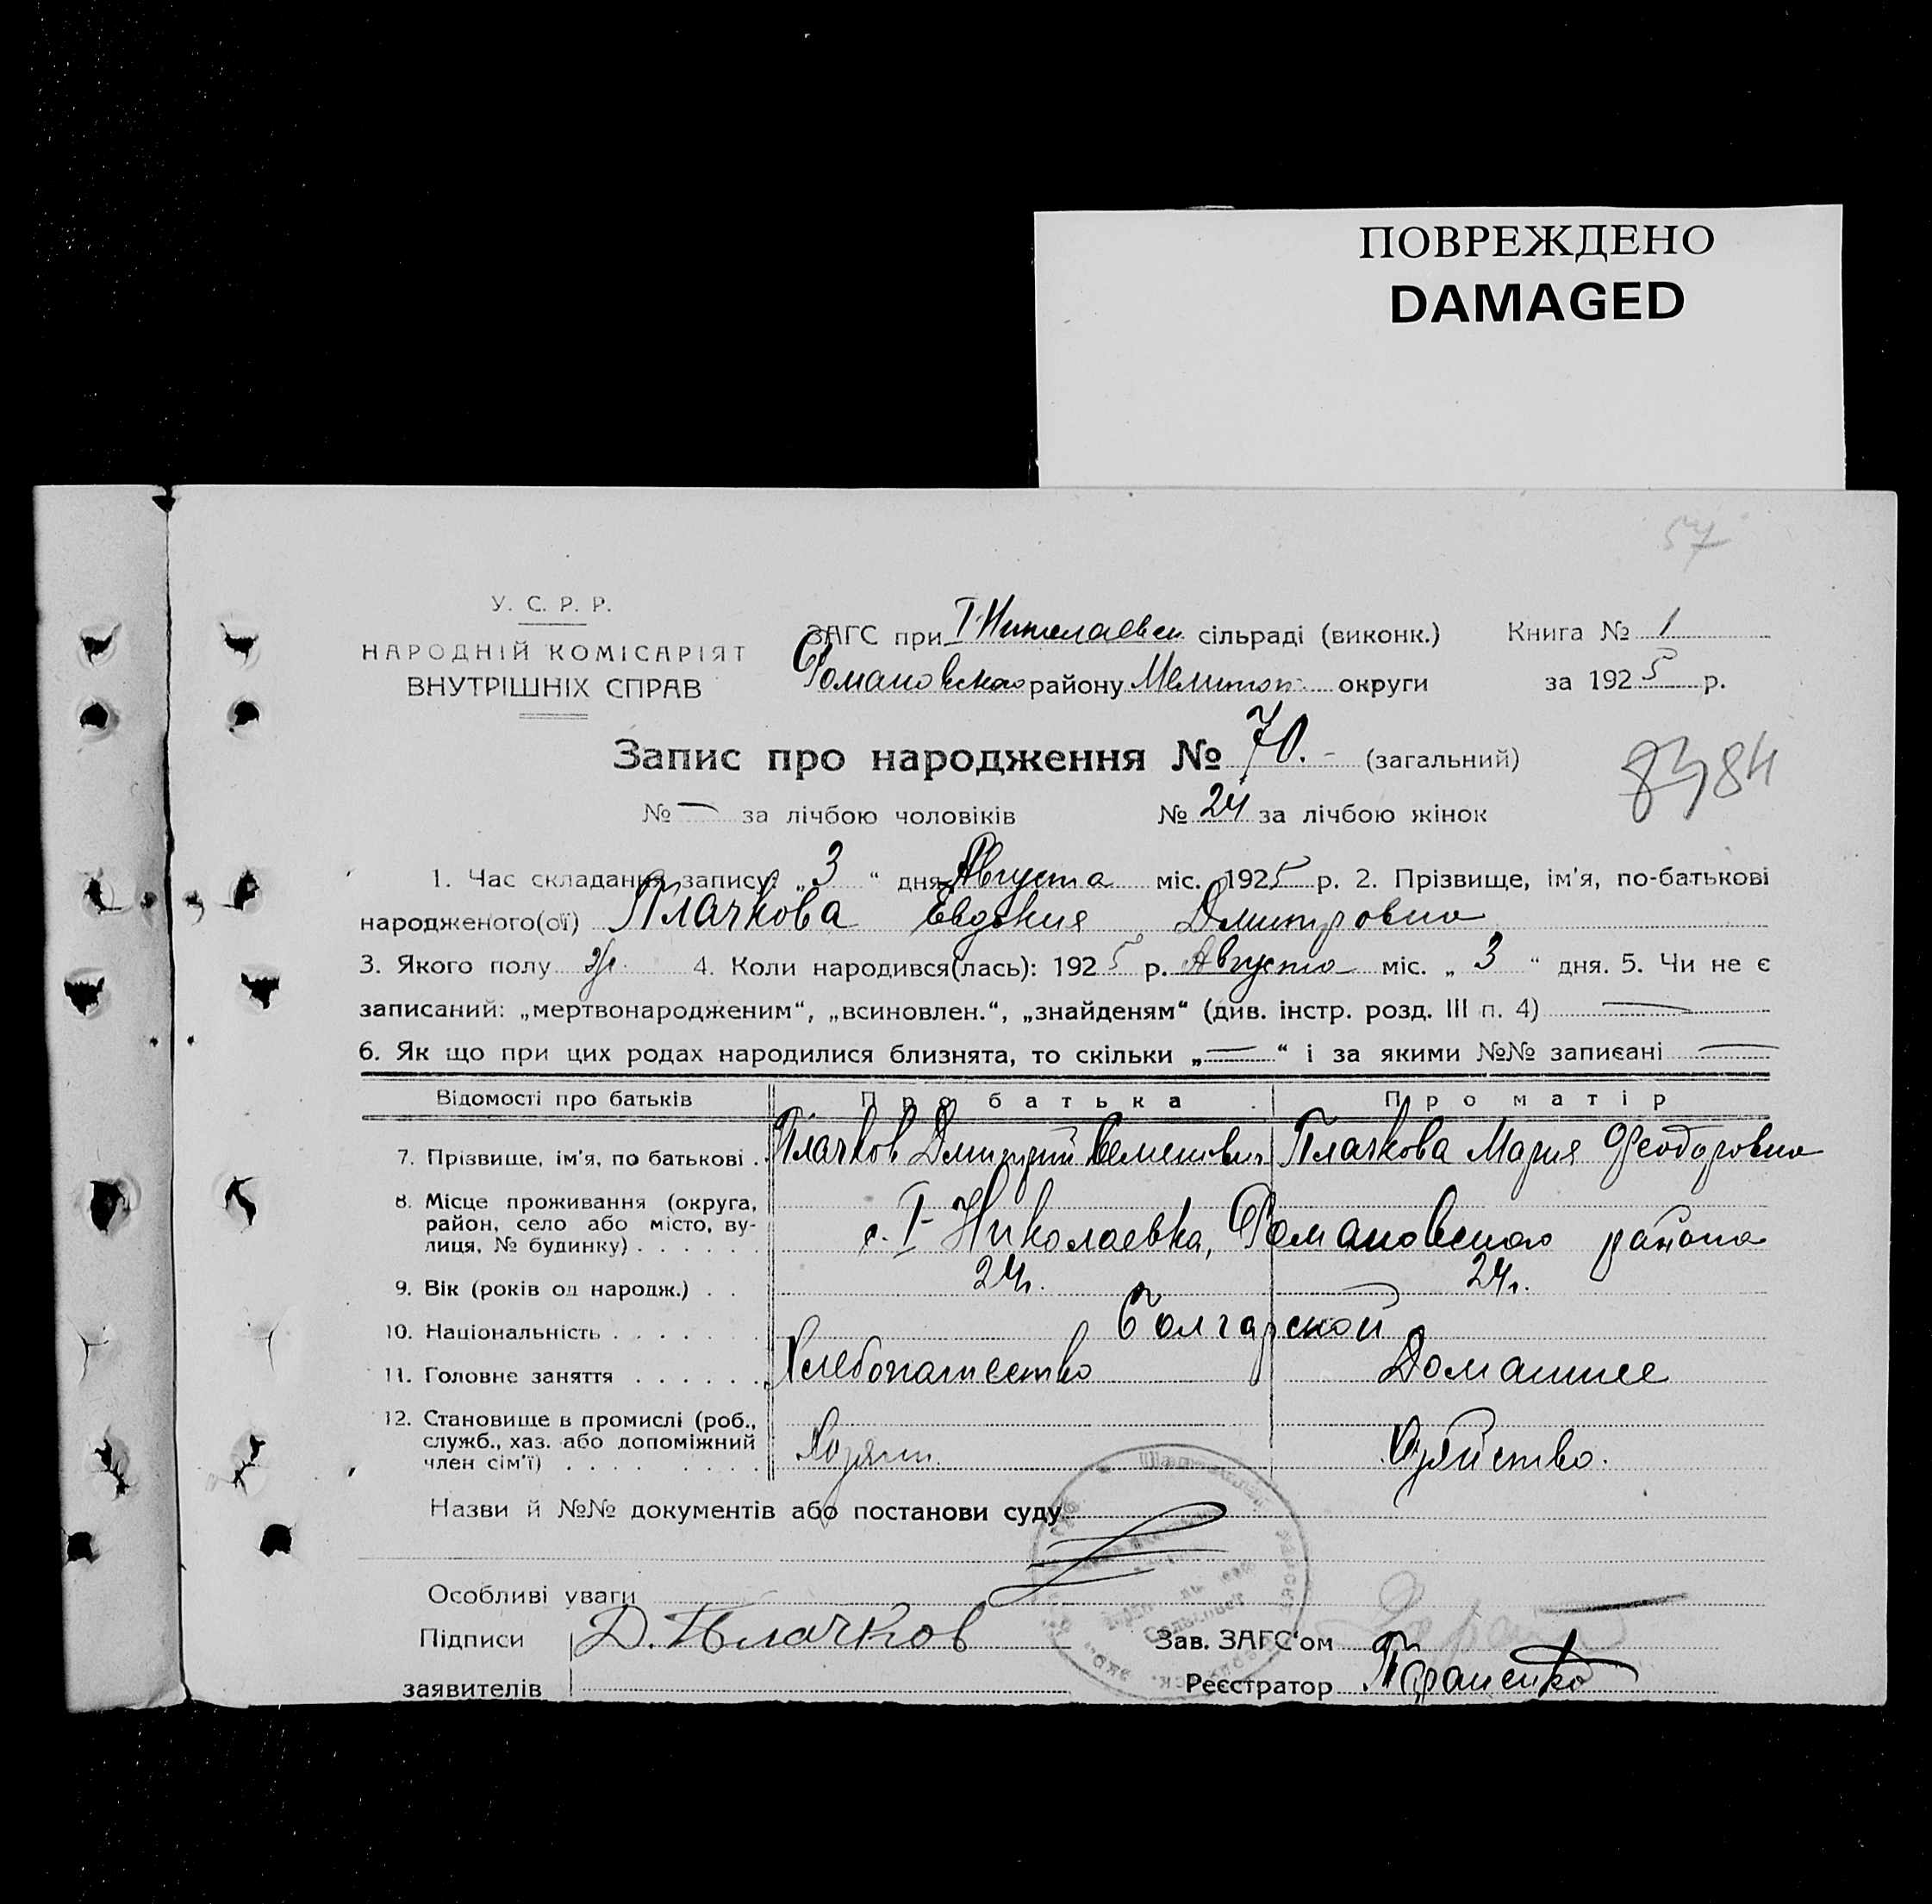 ПОВРЕЖДЕНО
DAMAGED
57
У. С. Р. Р.
НАРОДНІЙ КОМІСАРІЯТ
ВНУТРІШНІХ СПРАВ
ЗАГС при І Николаевск. сільраді (виконк.)
Романовского району Мелитоп. округи
Книга № 1
за 1925 р.
Запис про народження № 70. - (загальний)
8484
№ — за лічбою чоловіків № 24 за лічбою жінок
1. Час складання запису: „3“ дня Августа міс. 1925 р. 2. Прізвище, ім'я, по-батькові
народженого(ої) Плачкова Евдокия Дмитровна
3. Якого полу ж. 4. Коли народився(лась): 1925 р. Августа міс. „3“ дня. 5. Чи не є
записаний: „мертвонародженим“, „всиновлен.“, „знайденям“ (див. інстр. розд. III п. 4) —
6. Як що при цих родах народилися близнята, то скільки „—“ і за якими №№ записані —
Відомості про батьків Про батька Про матір
7. Прізвище, ім'я, по батькові . Плачков Дмитрий Семенович Плачкова Мария Феодоровна
8. Місце проживання (округа,
район, село або місто, ву-
лиця, № будинку) . . . . . . с. І-Николаевка, Романовского района
9. Вік (років од народж.) . . 24 г. 24 г.
10. Національність . . . . . . . Болгарской
11. Головне заняття . . . . . . Хлебопашество Домашнее
12. Становище в промислі (роб.,
служб., хаз. або допоміжний
член сім'ї) . . . . . . . . . Хозяин. Хозяйство.
Назви й №№ документів або постанови суду
Особливі уваги
Підписи Д. Плачков Зав. ЗАГС'ом
заявителів Реєстратор